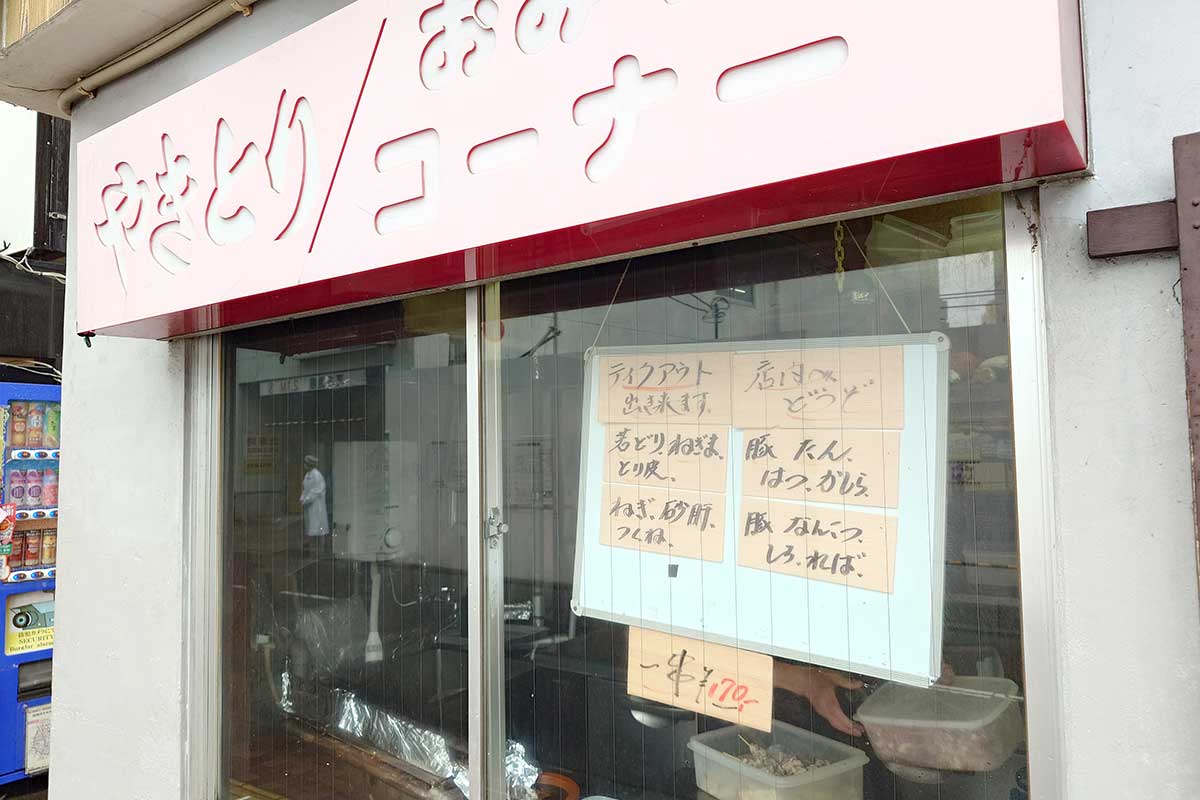 やきとり
おの
コーナー
テイクアウト
出き来ます。
店内へ
どうぞ
若どり、ねぎま、
とり皮、
ねぎ、砂肝、
つくね、
豚 たん、
はつ、がしら、
豚 なんこつ、
しろ、ればー
一串¥170,-
SECURITY